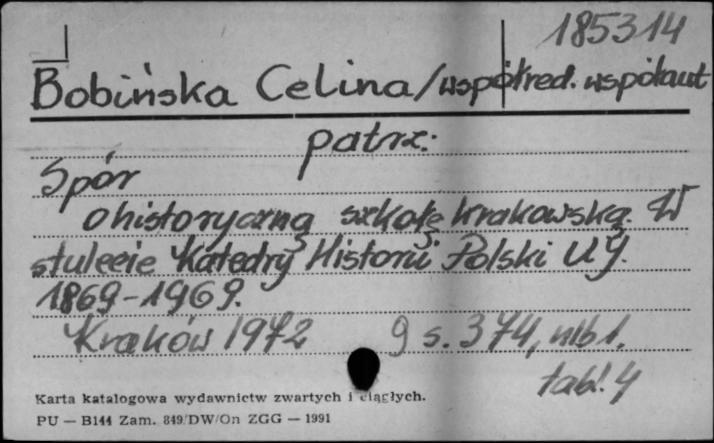 185314
Bobińska Celina/współred. współaut
patrz:
Spór
o historyczną szkołę krakowską. W
stulecie Katedry Historii Polski UJ.
1869-1969.
Kraków 1972 9 s. 374, nlb 1.
tabl. 4
Karta katalogowa wydawnictw zwartych i ciągłych.
PU — B144 Zam. 849/DW/On ZGG — 1991